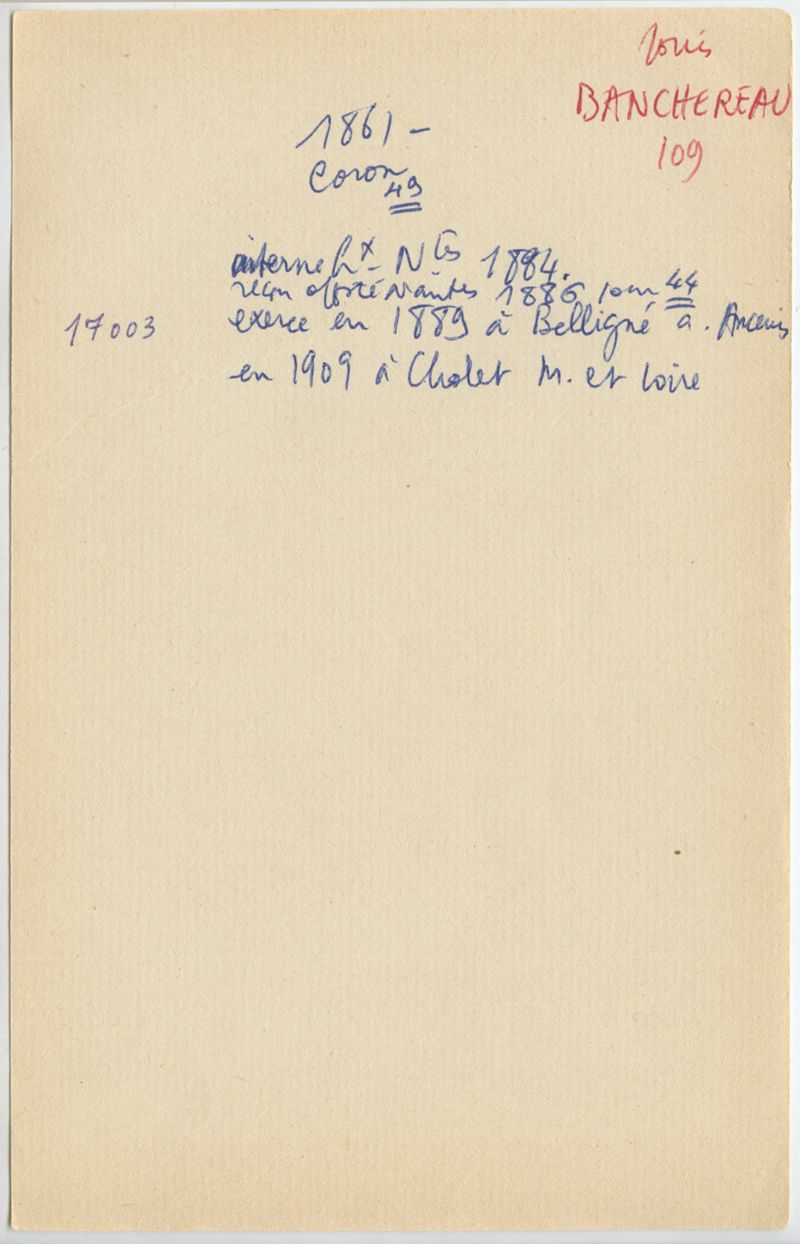 Louis
BANCHEREAU
109
1861 -
Coron
49
interne hx - Ntes 1884.
reçu off sté Nantes 1886 pour 44
17003 exerce en 1889 à Belligné a. Ancenis
en 1909 à Cholet M. et Loire